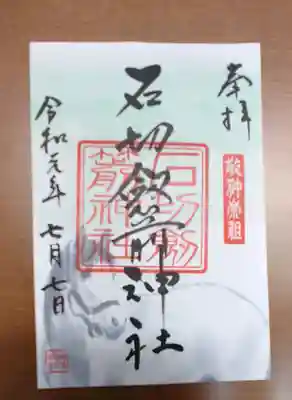 奉拝
敬神崇祖
石切劔箭神社
石切劔
箭神社
令和元年 七月七日